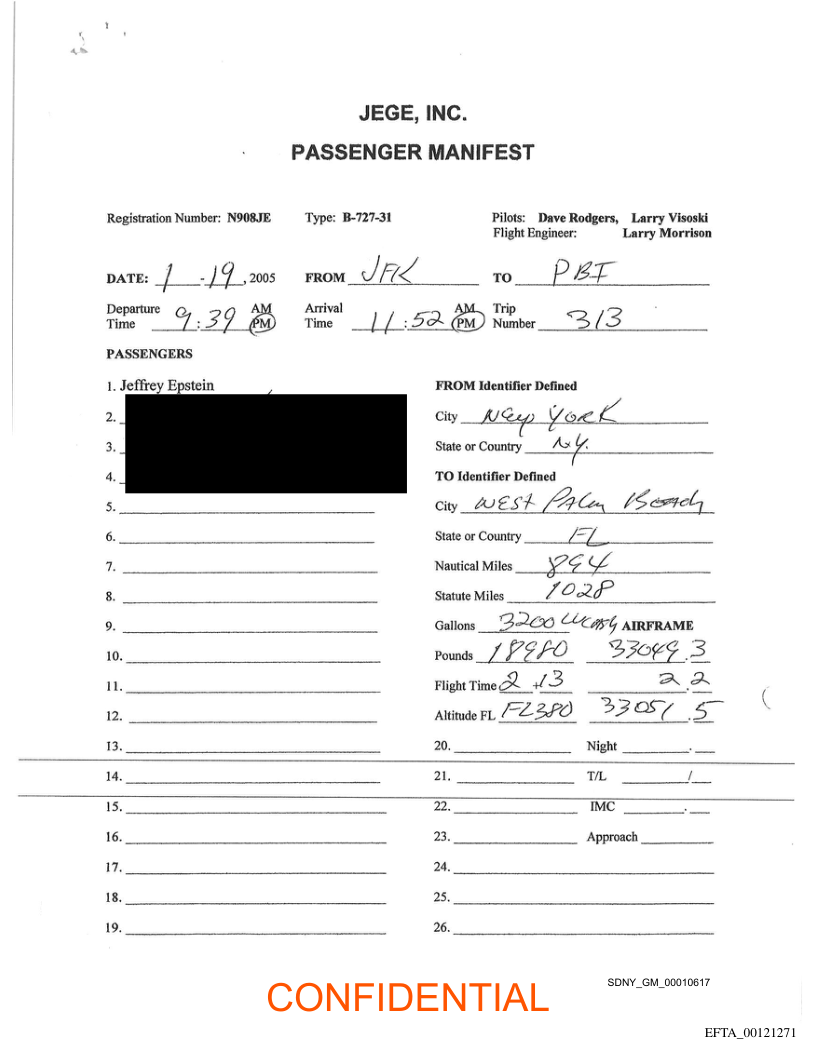 JEGE, INC.
PASSENGER MANIFEST
Registration Number: N908JE Type: B-727-31 Pilots: Dave Rodgers, Larry Visoski
Flight Engineer: Larry Morrison
DATE: 1 - 19, 2005 FROM JFK TO PBI
Departure Time 9:39 AM PM Arrival Time 11:52 AM PM Trip Number 313
PASSENGERS
1. Jeffrey Epstein FROM Identifier Defined
2. City New York
3. State or Country N.Y.
4. TO Identifier Defined
5. City WEST PALM Beach
6. State or Country FL
7. Nautical Miles 894
8. Statute Miles 1028
9. Gallons 3200 AIRFRAME
10. Pounds 18980 33049.3
11. Flight Time 2+13 2.2
12. Altitude FL FL380 33051.5
13. 20. Night .
14. 21. T/L /
15. 22. IMC .
16. 23. Approach
17. 24.
18. 25.
19. 26.
CONFIDENTIAL
SDNY_GM_00010617
EFTA_00121271